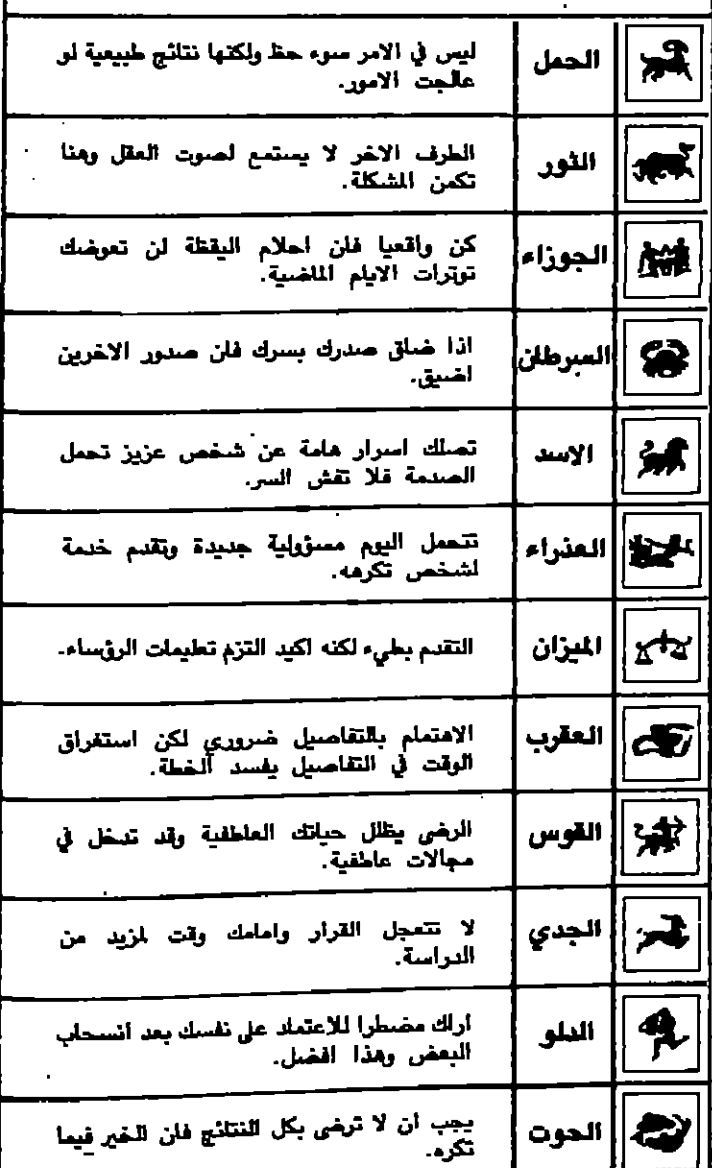 الحمل
ليس في الامر سوء حظ ولكنها نتائج طبيعية لو
عالجت الامور.
الثور
الطرف الاخر لا يستمع لصوت العقل وهنا
تكمن المشكلة.
الجوزاء
كن واقعيا فان احلام اليقظة لن تعوضك
توترات الايام الماضية.
السرطان
اذا ضاق صدرك بسرك فان صدور الاخرين
اضيق.
الاسد
تصلك اسرار هامة عن شخص عزيز تحمل
الصدمة فلا تفش السر.
العذراء
تتحمل اليوم مسؤولية جديدة وتقدم خدمة
لشخص تكرهه.
الميزان
التقدم بطيء لكنه اكيد التزم تعليمات الرؤساء.
العقرب
الاهتمام بالتفاصيل ضروري لكن استغراق
الوقت في التفاصيل يفسد الخطة.
القوس
الرضى يظلل حياتك العاطفية وقد تدخل في
مجالات عاطفية.
الجدي
لا تتعجل القرار وامامك وقت لمزيد من
الدراسة.
الدلو
اراك مضطرا للاعتماد على نفسك بعد انسحاب
البعض وهذا افضل.
الحوت
يجب ان لا ترضى بكل النتائج فان الخير فيما
تكره.